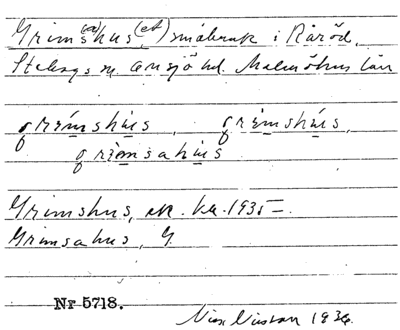 Grims(a)hus, (et) småbruk i Råröd,
Stehags sn. Onsjö hd. Malmöhus län
grímshùs, grìmshús,
grìmsahùs
Grimshus, ek. ka. 1935–
Grimsahus, G.
Nr 5718.
1936.